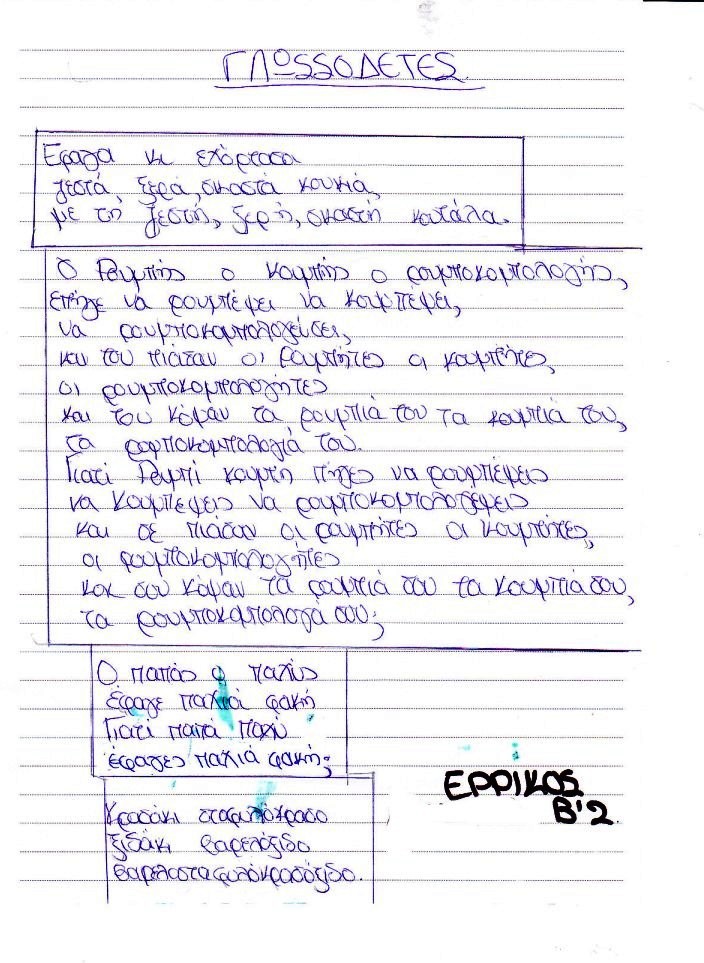 ΓΛΩSSΟΔΕΤΕS
Έφαγα κι εχόρτασα
ζεστά, ξερά, σκαστά κουκιά,
με τη ζεστή, ξερή, σκαστή κουτάλα.
Ο Ρουμπής ο Κουμπής ο ρουμποκομπολογής,
επήγε να ρουμπέψει να κουμπέψει,
να ρουμποκομπολογεύσει,
και τον πιάσαν οι ρουμπήτες οι κουμπήτες,
οι ρουμποκομπολογήτες
και του κόψαν τα ρουμπιά του τα κουμπιά του,
τα ρουμποκομπολογιά του.
Γιατί Ρουμπή κουμπή πήγες να ρουμπέψεις
να κουμπέψεις να ρουμποκομπολογέψεις
και σε πιάσαν οι ρουμπήτες οι κουμπήτες,
οι ρουμποκομπολογήτες
και σου κόψαν τα ρουμπιά σου τα κουμπιά σου,
τα ρουμποκομπολογά σου;
Ο παπάς ο παχύς
έφαγε παχιά φακή
Γιατί παπά παχύ
έφαγες παχιά φακή;
Κρασάκι σταφυλόκρασο
ξιδάκι βαρελόξιδο
βαρελοσταφυλοκρασόξιδο.
ΕΡΡΙΚΟS
Β'2.